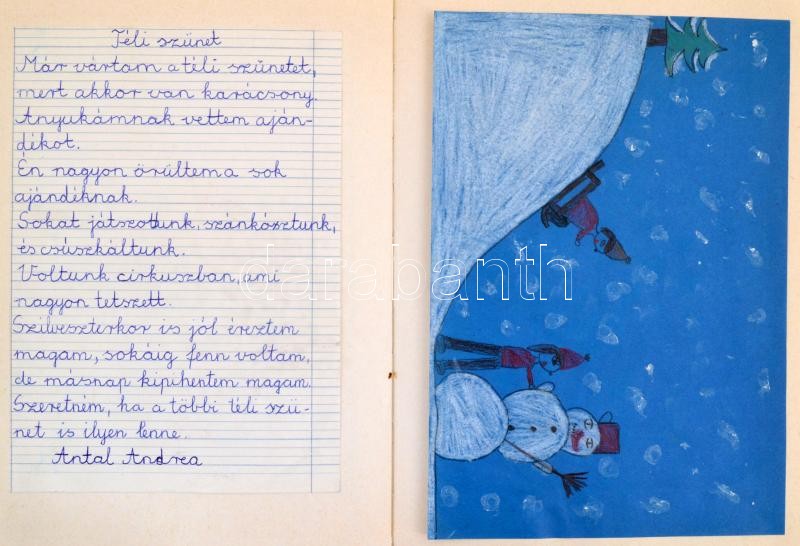 Téli szünet
Már vártam a téli szünetet,
mert akkor van karácsony.
Anyukámnak vettem aján-
dékot.
Én nagyon örültem a sok
ajándéknak.
Sokat játszottunk, szánkóztunk,
és csúszkáltunk.
Voltunk cirkuszban, ami
nagyon tetszett.
Szilveszterkor is jól éreztem
magam, sokáig fenn voltam,
de másnap kipihentem magam.
Szeretném, ha a többi téli szü-
net is ilyen lenne.
Antal Andrea
darabanth